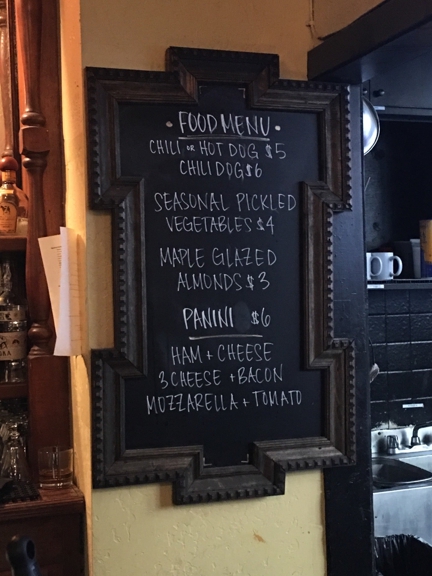 • FOOD MENU •
CHILI OR HOT DOG $5
CHILI DOG $6
SEASONAL PICKLED
VEGETABLES $4
MAPLE GLAZED
ALMONDS $3
PANINI $6
HAM + CHEESE
3 CHEESE + BACON
MOZZARELLA + TOMATO